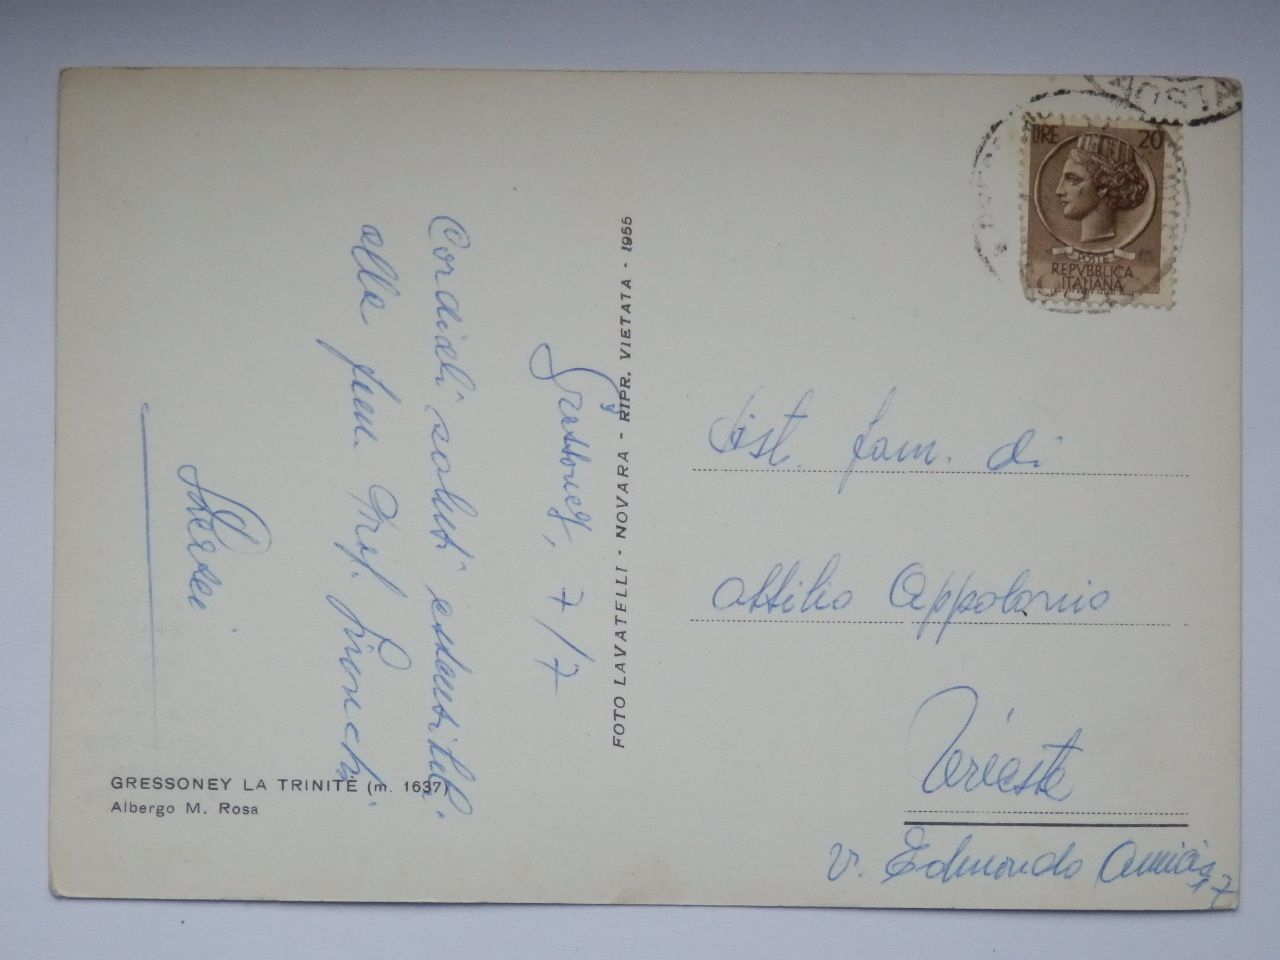 GRESSONEY LA TRINITÉ (m. 1637)
Albergo M. Rosa
Gressoney, 7/7
Cordiali saluti
alla fam. Prof.
FOTO LAVATELLI - NOVARA - RIPR. VIETATA - 1955
AOSTA
LIRE 20
POSTE
REPVBBLICA
ITALIANA
Dist. fam. di
Attilio Appolonio
Trieste
v. Edmondo Amicis
17